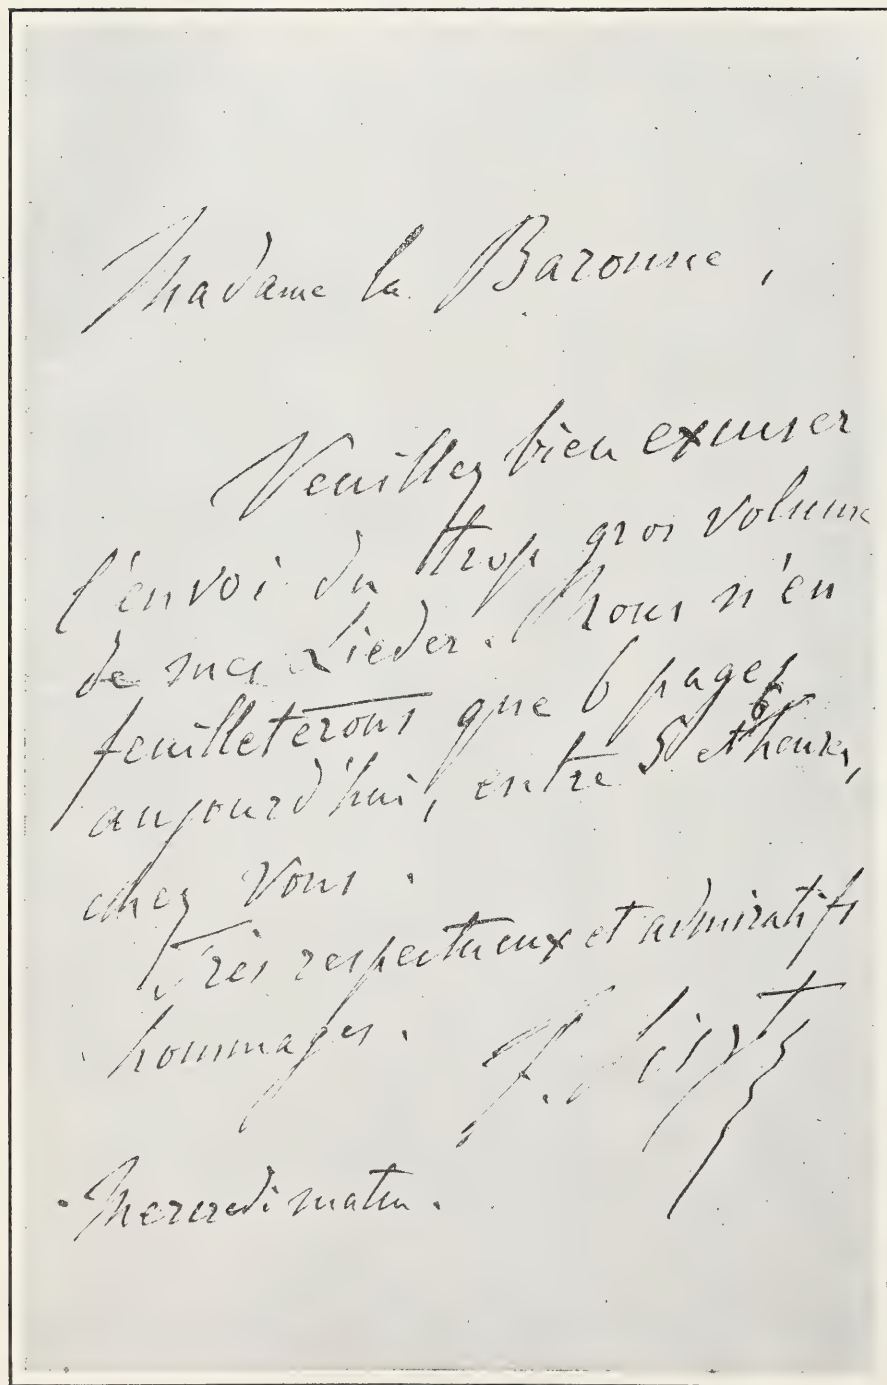 Madame la Baronne,
Veuillez bien excuser
l'envoi du trop gros volume
de mes Lieder. Nous n'en
feuilleterons que 6 pages
aujourd'hui, entre 5 et 6 heures,
chez Vous.
Très respectueux et admiratifs
hommages.
F. Liszt
Mercredi matin.